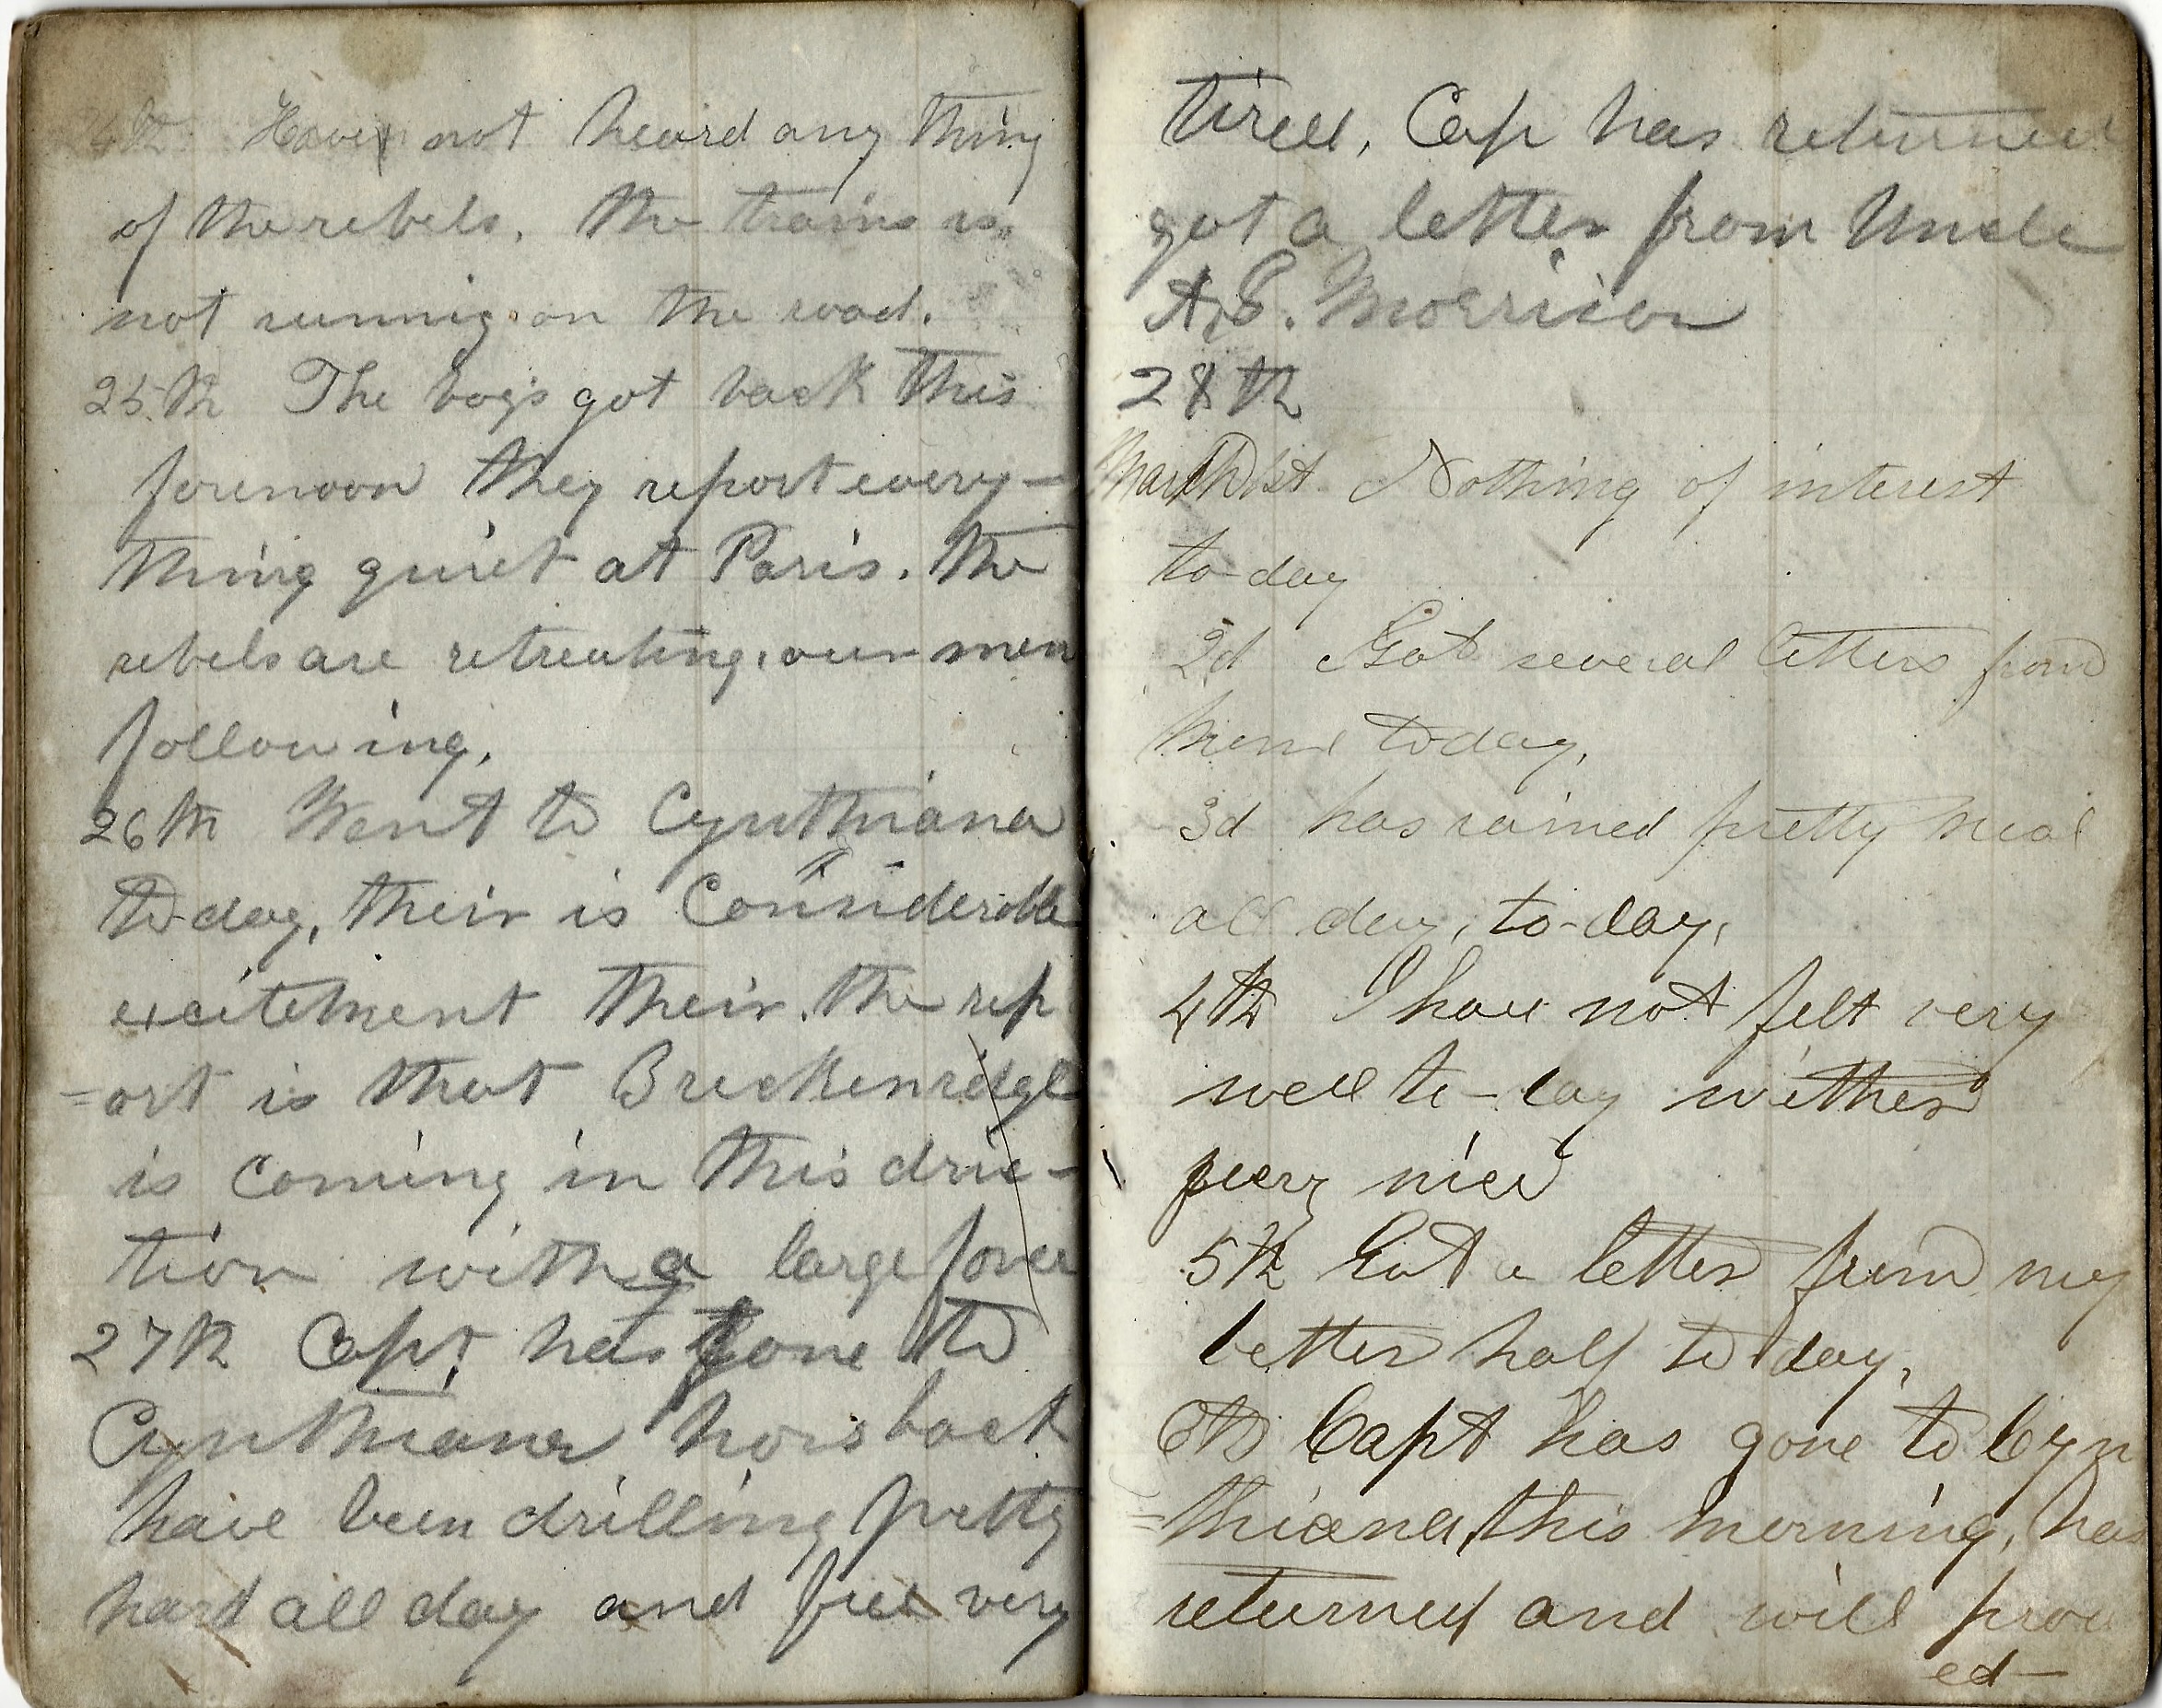 24th Have not heard any thing
of the rebels. the trains is
not runnig on the road.
25th The boys got back this
forenoon they report every-
thing quiet at Paris. the
rebels are retreating. our men
following.
26th Went to Cynthiana
to day, their is Considerable
excitement their. the rep
=ort is that Breckenridge
is coming in this dric-
tion with a large force
27th Capt, has gone to
Cynthiana horsback
have been drilling pretty
hard all day and feel very
tired. Cap has returned
got a letter from Uncle
A. S. Morrison
28th
March 1st Nothing of interest
to-day
2d Got several letters from
home today.
3d has rained pretty near
all day, to-day,
4th I have not felt very
well to-day wether
very nice
5th Got a letter from my
better half to day,
6th Capt has gone to Cyn
=thiana, this morning, has
returned and will proce
ed-